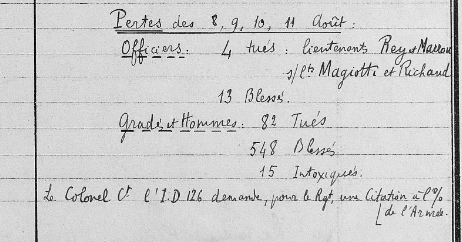 Pertes des 8, 9, 10, 11 Août :
Officiers : 4 tués : lieutenants Rey et Marrou
s/lts Magiotti et Richaud
13 Blessés.
Gradés et Hommes : 82 Tués
548 Blessés
15 Intoxiqués.
Le Colonel Ct l'I.D 126 demande, pour le Rgt, une Citation à l'O/
de l'Armée.